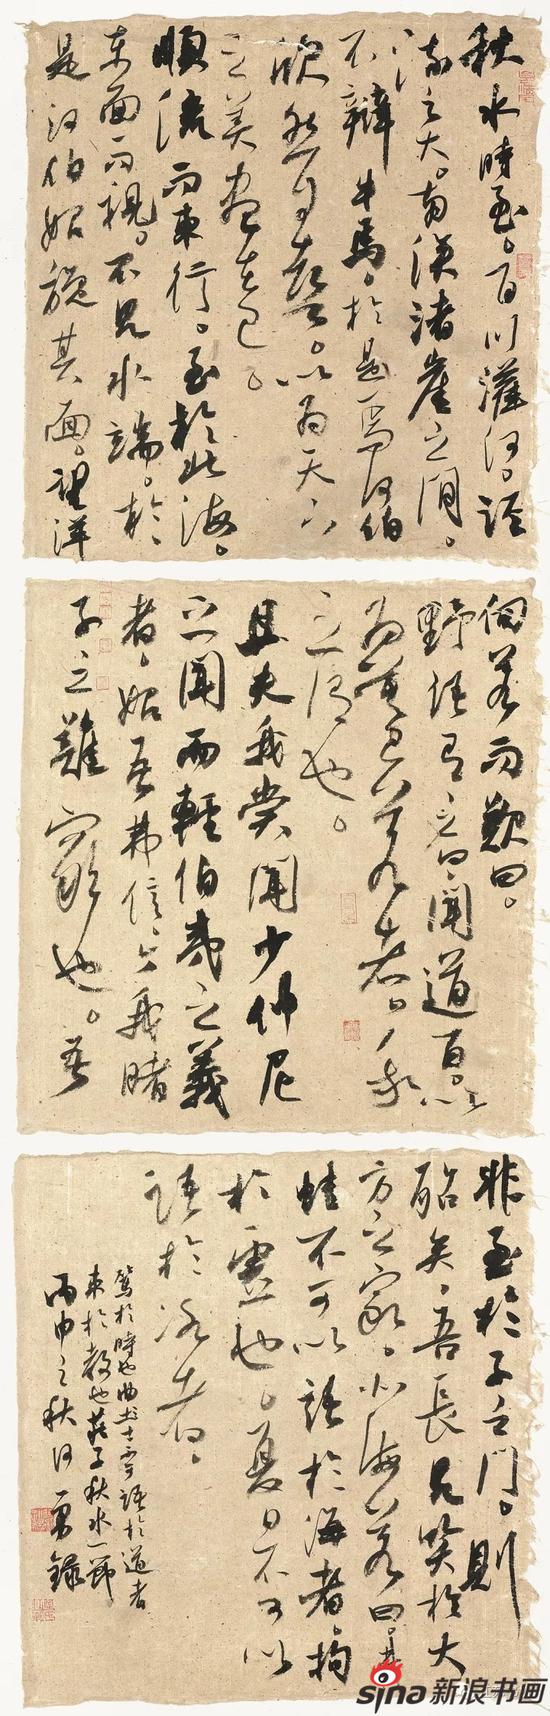 秋水時至。百川灌河。涇
流之大。兩涘渚崖之間。
不辯牛馬。於是焉河伯
欣然自喜。以為天下
之美盡在己。
順流而東行。至於北海。
東面而視。不見水端。於
是河伯始旋其面。望洋
向若而歎曰。
野語有之曰、聞道百。以
為莫己若者。我
之謂也。
且夫我嘗聞少仲尼
之聞而輕伯夷之義
者、始吾弗信、今我睹
子之難窮也。吾
非至於子之門。則
殆矣、吾長見笑於大
方之家。北海若曰。井
蛙不可以語於海者拘
於虛也。夏虫不可以
語於冰者。
篤於時也曲士不可語於道者
束於教也莊子秋水一節
丙申之秋何勇錄
sina新浪书画